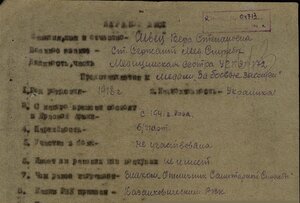 НАГРАДНОЙ ЛИСТ
Фамилия, имя и отчество - Швец Степановна
Военное звание - Ст. Сержант Мед. Службы
Должность, часть Медицинская сестра
Представляется к медали "За боевые заслуги"
1. Год рождения - 1918 г. 2. Национальность - Украинка
3. С какого времени состоит
в Красной Армии с 1941 года.
4. Партийность - б/парт.
5. Участие в боях - не участвовала
6. Имеет ли ранения или контузии не имеет
7. Чем ранее награжден - Знаком "Отличник Санитарной Службы"
8. Каким РВК призван - РВК